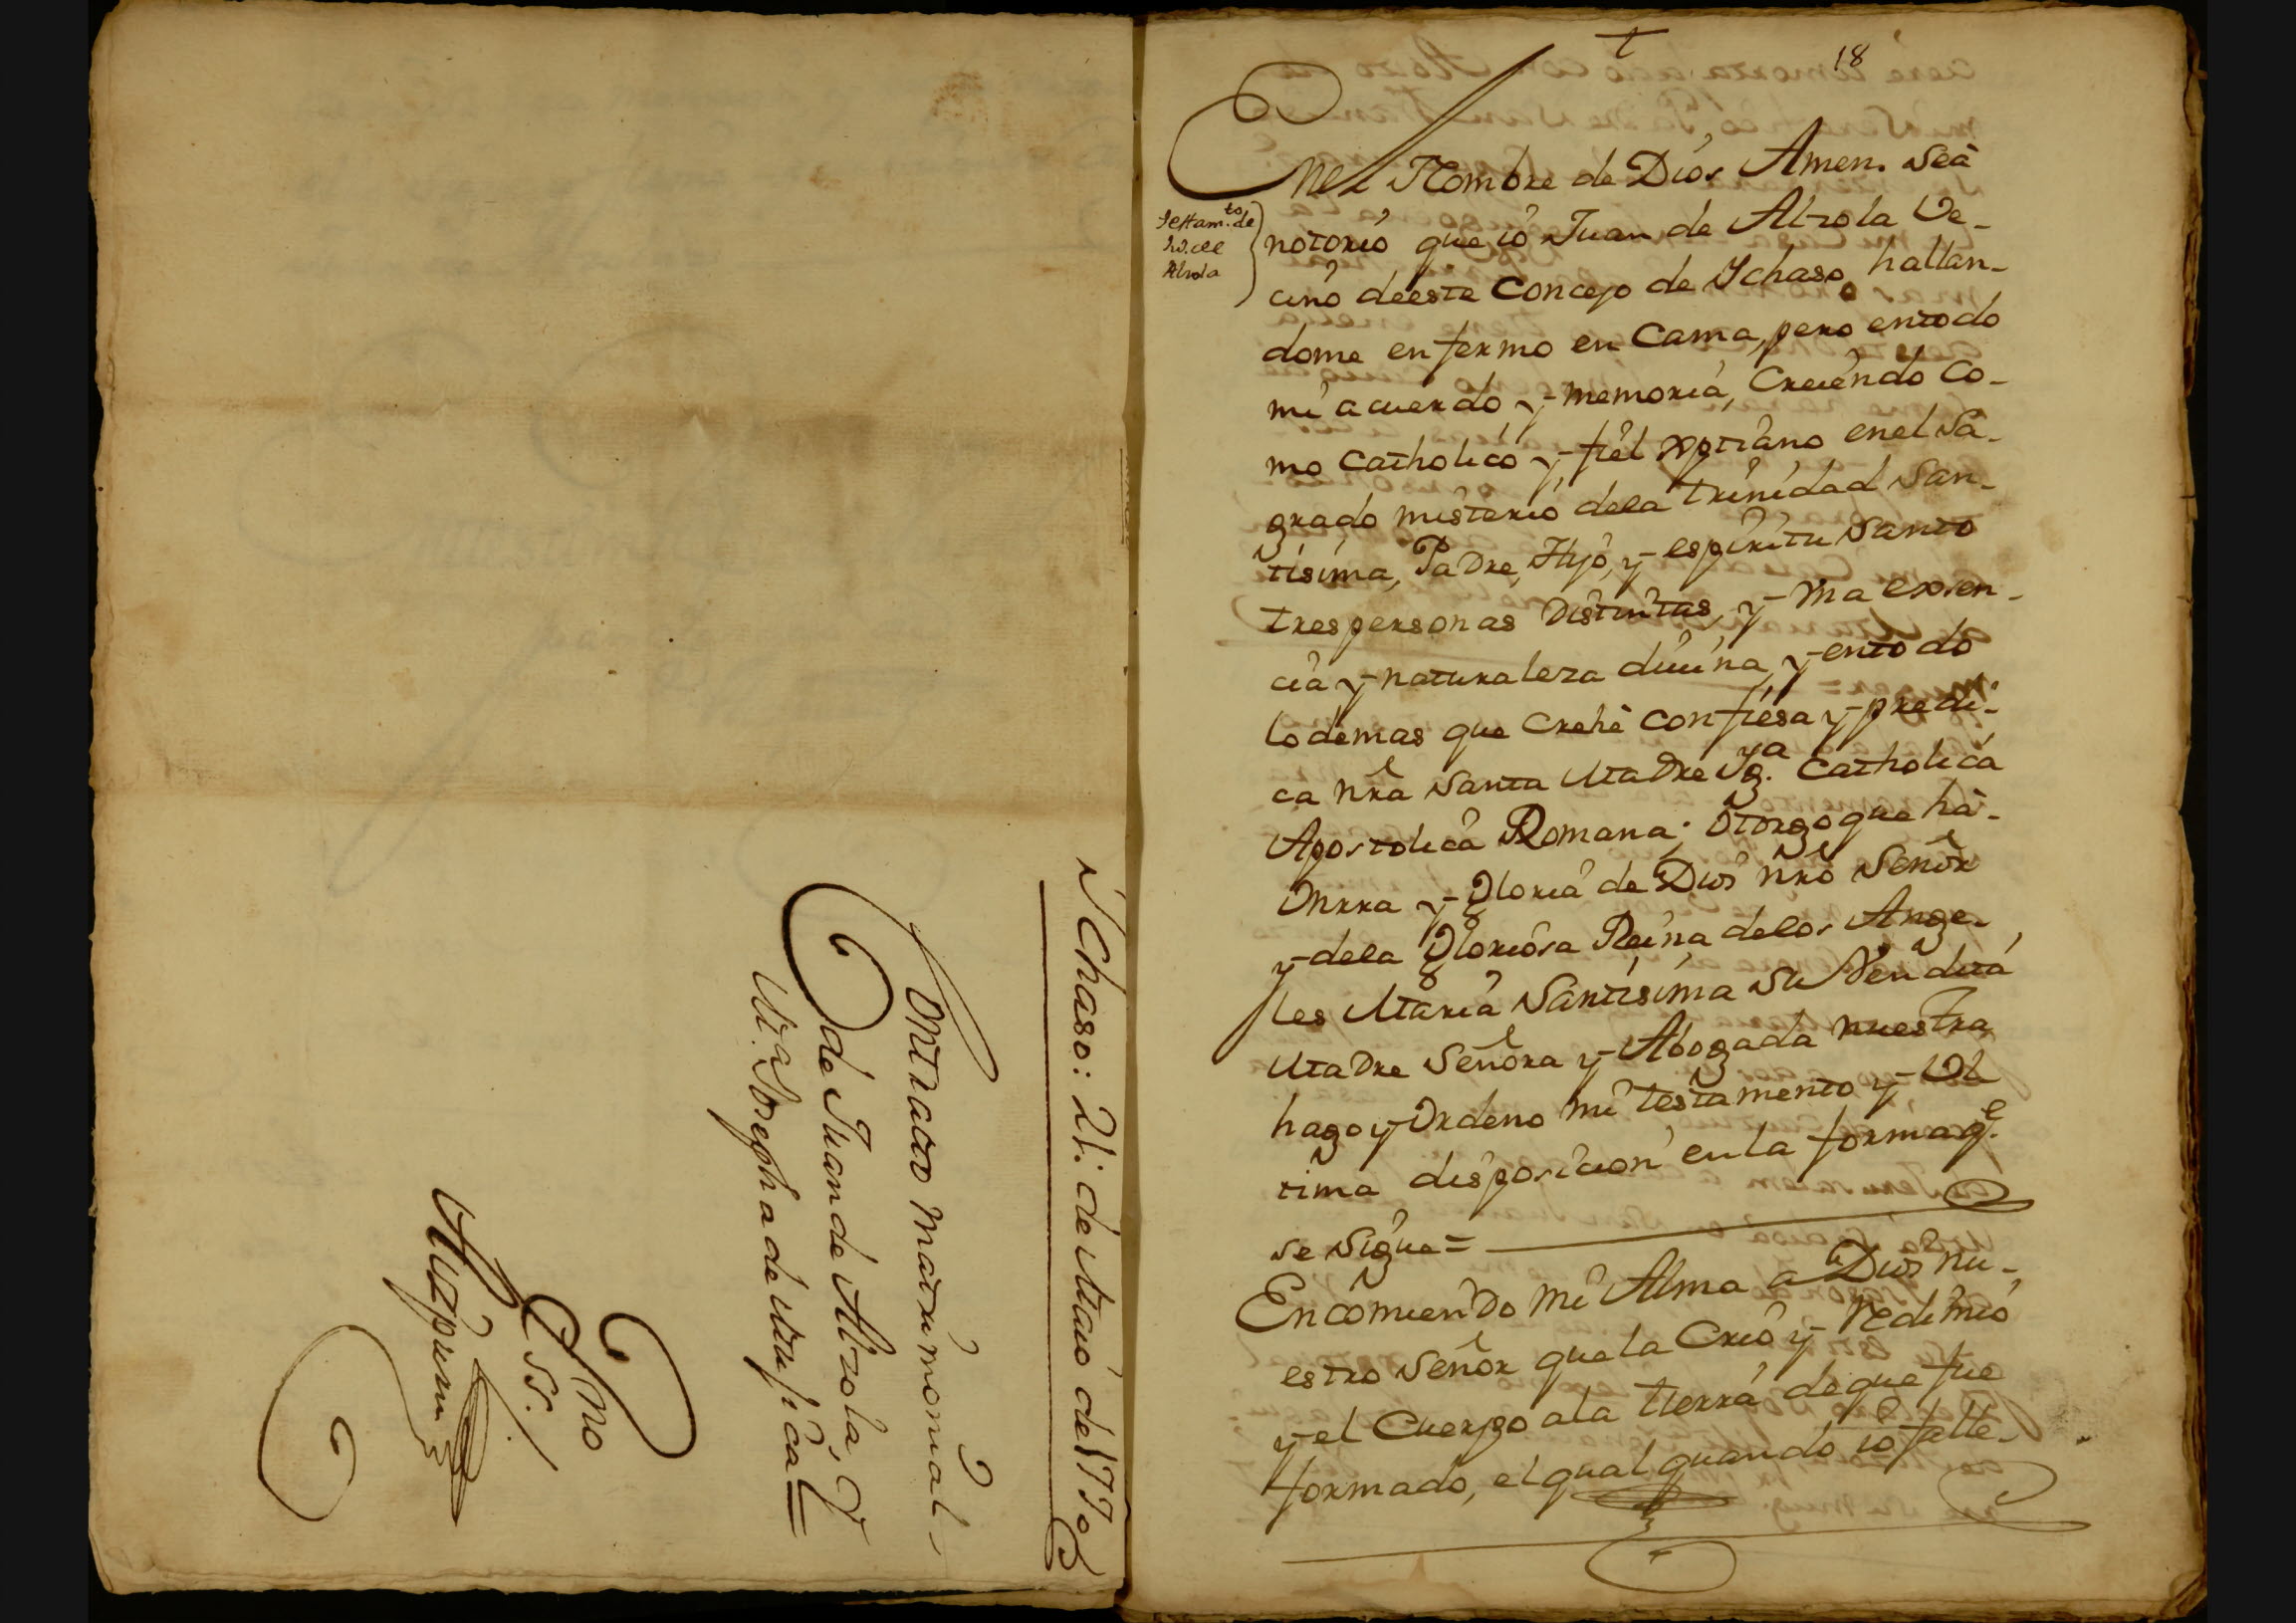 Ychaso: 21: de Maio de 1770
Contracto matrimonial,
de Juan de Alzola, Y
M.a Josepha de Mujica=
Ess.no
Aizpuru
†
18
Testam.to de
Ju.o de
Alzola
Enel Nombre de Dios Amen. Seà
notorio que io Juan de Alzola Ve-
cino deeste Concejo de Ychaso, hallan-
dome enfermo en Cama, pero entodo
mi acuerdo y memoria, Creiendo Co-
mo Catholico y fiel xptiano enel Sa-
grado misterio dela trinidad San-
tisima, Padre, Hijo, y espiritu Santo
tres personas Distintas, y Vna exsen-
cia y naturaleza divina, y entodo
lodemas que Crehe confiesa y predi-
ca nra Santa Madre Yg.a Catholica
Apostolica Romana; Otorgo que hà
Onrra y Gloria de Dios nro Señor
y dela Gloriosa Reina delos Ange-
les Maria Santisima Su Vendita
Madre Señora y Abogada nuestra
hago y Ordeno mi testamento y Vl
tima disposicion en la forma q.e
se Sigue=
Encomiendo mi Alma a Dios nu-
estro Señor que la Crió y redimió
y el Cuerpo ala tierra deque fue
formado, el qual quando io falle-